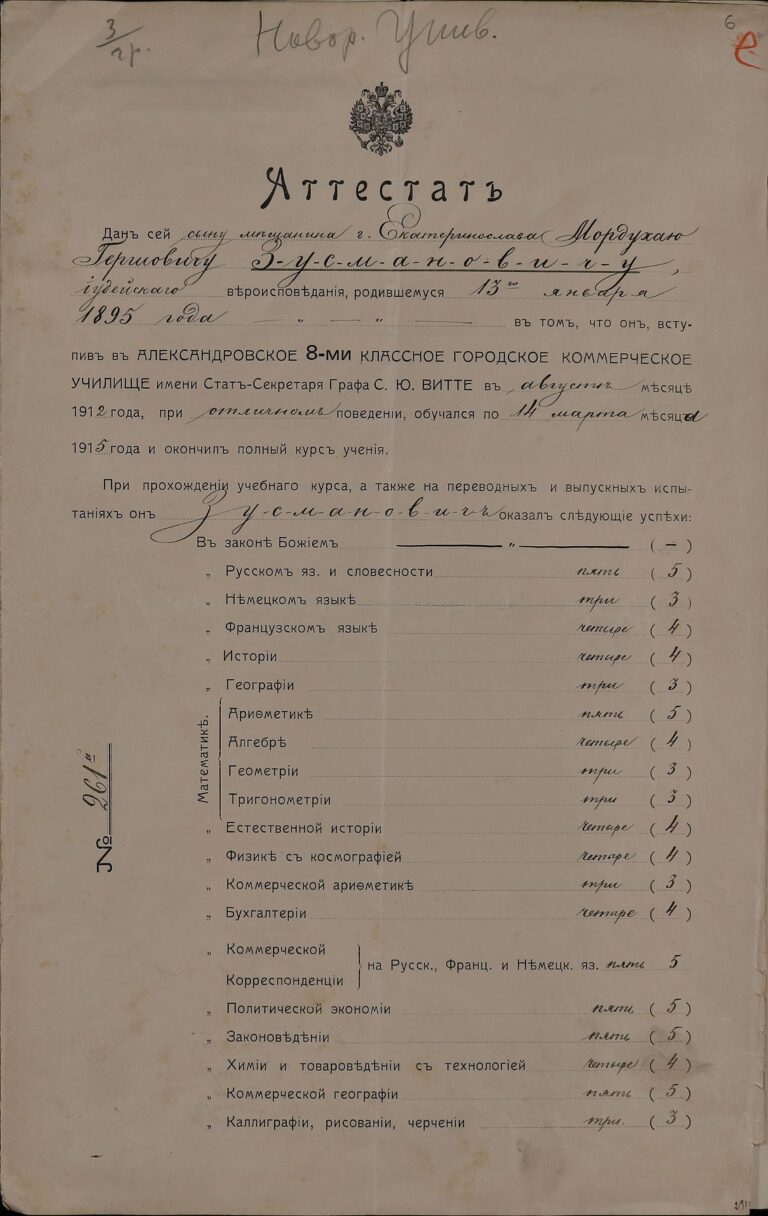 3/гр.
Новор. Унив.
6
Аттестатъ
Данъ сей сыну мѣщанина г. Екатеринослава Мордухаю
Гершовичу З-у-с-м-а-н-о-в-и-ч-у,
іудейскаго вѣроисповѣданія, родившемуся 13го января
1895 года — „ — „ — въ томъ, что онъ, всту-
пивъ въ АЛЕКСАНДРОВСКОЕ 8-МИ КЛАССНОЕ ГОРОДСКОЕ КОММЕРЧЕСКОЕ
УЧИЛИЩЕ имени Статъ-Секретаря Графа С. Ю. ВИТТЕ въ августѣ мѣсяцѣ
1912 года, при отличномъ поведеніи, обучался по 14 марта мѣсяца
1915 года и окончилъ полный курсъ ученія.
При прохожденіи учебнаго курса, а также на переводныхъ и выпускныхъ испы-
таніяхъ онъ З-у-с-м-а-н-о-в-и-ч-ъ оказалъ слѣдующіе успѣхи:
Въ законѣ Божіемъ — „ — ( — )
„ Русскомъ яз. и словесности пять ( 5 )
„ Нѣмецкомъ языкѣ три ( 3 )
„ Французскомъ языкѣ четыре ( 4 )
„ Исторіи четыре ( 4 )
„ Географіи три ( 3 )
Математикѣ.
Ариѳметикѣ пять ( 5 )
Алгебрѣ четыре ( 4 )
Геометріи три ( 3 )
Тригонометріи три ( 3 )
„ Естественной исторіи четыре ( 4 )
„ Физикѣ съ космографіей четыре ( 4 )
„ Коммерческой ариѳметикѣ три ( 3 )
„ Бухгалтеріи четыре ( 4 )
„ Коммерческой
Корреспонденціи
на Русск., Франц. и Нѣмецк. яз. пять 5
„ Политической экономіи пять ( 5 )
„ Законовѣдѣніи пять ( 5 )
„ Химіи и товаровѣдѣніи съ технологіей четыре ( 4 )
„ Коммерческой географіи пять ( 5 )
„ Каллиграфіи, рисованіи, черченіи три. ( 3 )
№ 261а